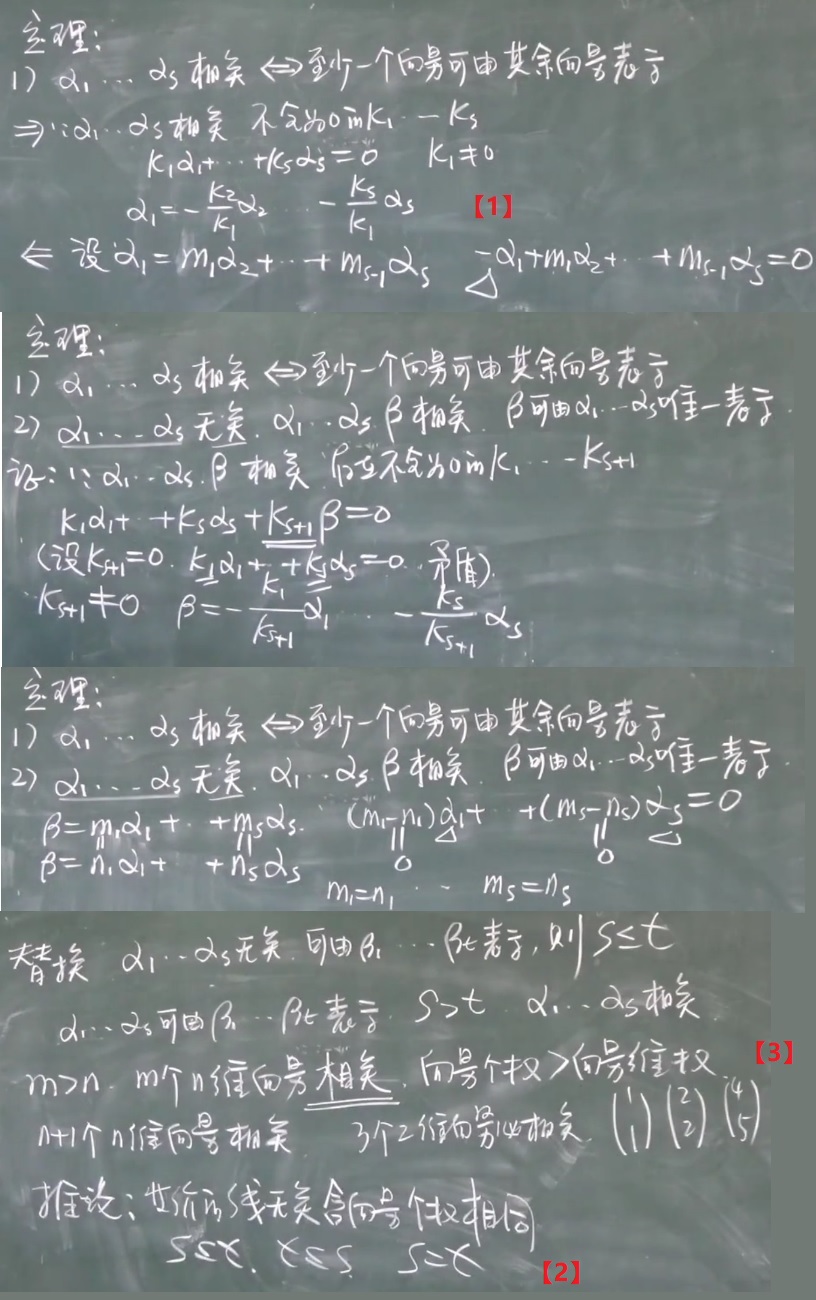 定理:
1) α₁ … αs 相关 ⇔ 至少一个向量可由其余向量表示
⇒ ∵ α₁ … αs 相关 不全为0的k₁ … ks
k₁α₁+ … +ksαs=0 k₁≠0
α₁=-k₂/k₁ α₂ … -ks/k₁ αs 【1】
⇐ 设α₁=m₁α₂+ … +ms-1αs -α₁+m₁α₂+ … +ms-1αs=0
定理:
1) α₁ … αs 相关 ⇔ 至少一个向量可由其余向量表示
2) α₁ … αs 无关. α₁ … αs β 相关. β可由α₁ … αs唯一表示.
证: ∵ α₁ … αs β 相关 存在不全为0的k₁ … ks+1
k₁α₁+ +ksαs+ks+1β=0
(设ks+1=0. k₁α₁+ +ksαs=0. 矛盾).
ks+1≠0 β=-k₁/ks+1 α₁ … -ks/ks+1 αs
定理:
1) α₁ … αs 相关 ⇔ 至少一个向量可由其余向量表示
2) α₁ … αs 无关. α₁ … αs β 相关. β可由α₁ … αs唯一表示.
β=m₁α₁+ … +msαs. (m₁-n₁)α₁+ +(ms-ns)αs=0
β=n₁α₁+ +nsαs 0 0
m₁=n₁ … ms=ns
替换 α₁ … αs无关. 可由β₁ … βt表示, 则 s≤t
α₁ … αs可由β₁ … βt表示. s>t α₁ … αs相关
m>n. m个n维向量相关. 向量个数>向量维数. 【3】
n+1个n维向量相关 3个2维向量必相关. (1 1) (2 2) (4 5)
推论: 等价的线无关含向量个数相同
s≤t. t≤s. s=t 【2】